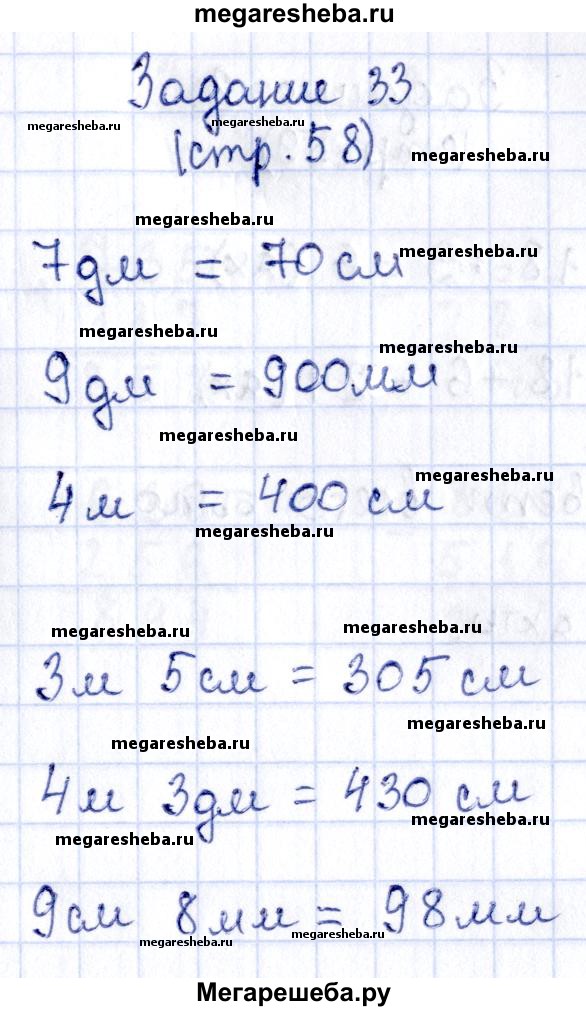 megaresheba.ru
Задание 33
megaresheba.ru megaresheba.ru
(стр. 58) megaresheba.ru
megaresheba.ru
7дм = 70 см megaresheba.ru
megaresheba.ru megaresheba.ru
9дм = 900мм
megaresheba.ru
4м = 400 см megaresheba.ru
megaresheba.ru
megaresheba.ru megaresheba.ru
3м 5см = 305 см
megaresheba.ru megaresheba.ru
4м 3дм = 430 см
megaresheba.ru megaresheba.ru
9см 8мм = 98мм
megaresheba.ru megaresheba.ru
Мегарешеба.ру